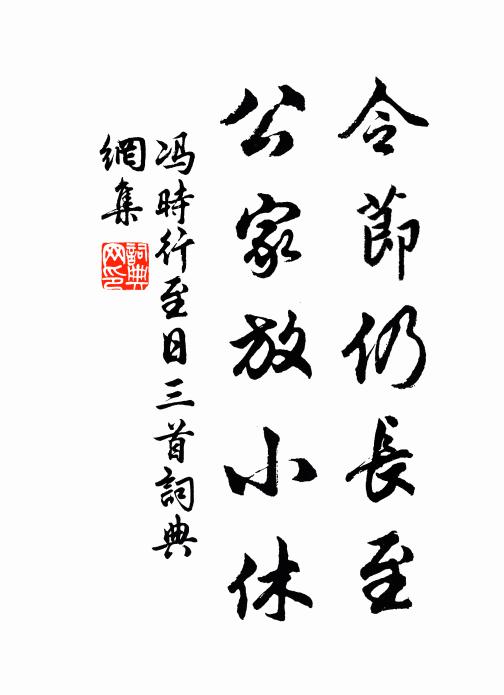 令節仍長至
公家放小休
冯時行至日三首詞典
網集
詞典
网印